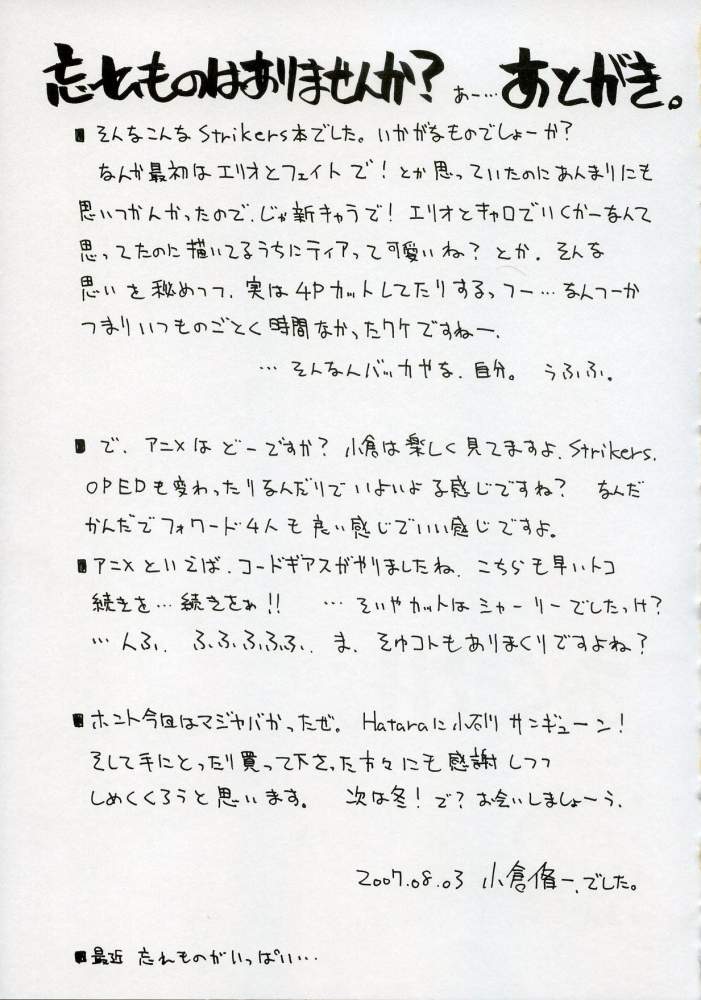 忘れものはありませんか？ あー… あとがき。
■ そんなこんな Strikers本でした。いかがなものでしょーか？
なんか最初は エリオとフェイト で！とか思っていたのにあんまりにも
思いつかんかったので、じゃ新キャラで！エリオとキャロでいくかーなんて
思ってたのに描いてるうちにティアって可愛いね？とか、そんな
思いを秘めつつ、実は4Pカットしてたりするっつー…なんつーか
つまりいつものごとく時間なかったワケですねー、
…そんなんバッカやな、自分。 うふふ。
■ で、アニメは どーですか？ 小倉は楽しく見てますよ、Strikers、
OPEDも変わったりなんだりでいよいよな感じですね？ なんだ
かんだでフォワード4人も良い感じでいい感じですよ。
■アニメといえば、コードギアスがやりましたね、こちらも早いトコ
続きを…続きをぉ！！ …そいやカットはシャーリーでしたっけ？
…んふ、ふふふふふ、ま、そゆコトもありまくりですよね？
■ホント今回はマジヤバかったぜ。Hataraに小砂リ サンギューン！
そして手にとったり買って下さった方々にも感謝しつつ
しめくくろうと思います。 次は冬！で？お会いしましょーう、
2007.08.03 小倉脩一、でした。
■最近 忘れものがいっぱい…